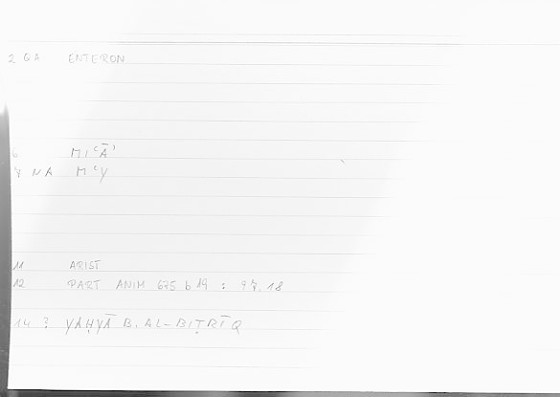 2 QA ENTERON
6 MIʿĀʾ
NA MʿY
11 ARIST
12 PART ANIM 675 b 19 : 97.18
14 ? YAḤYĀ B. AL-BIṬRĪQ